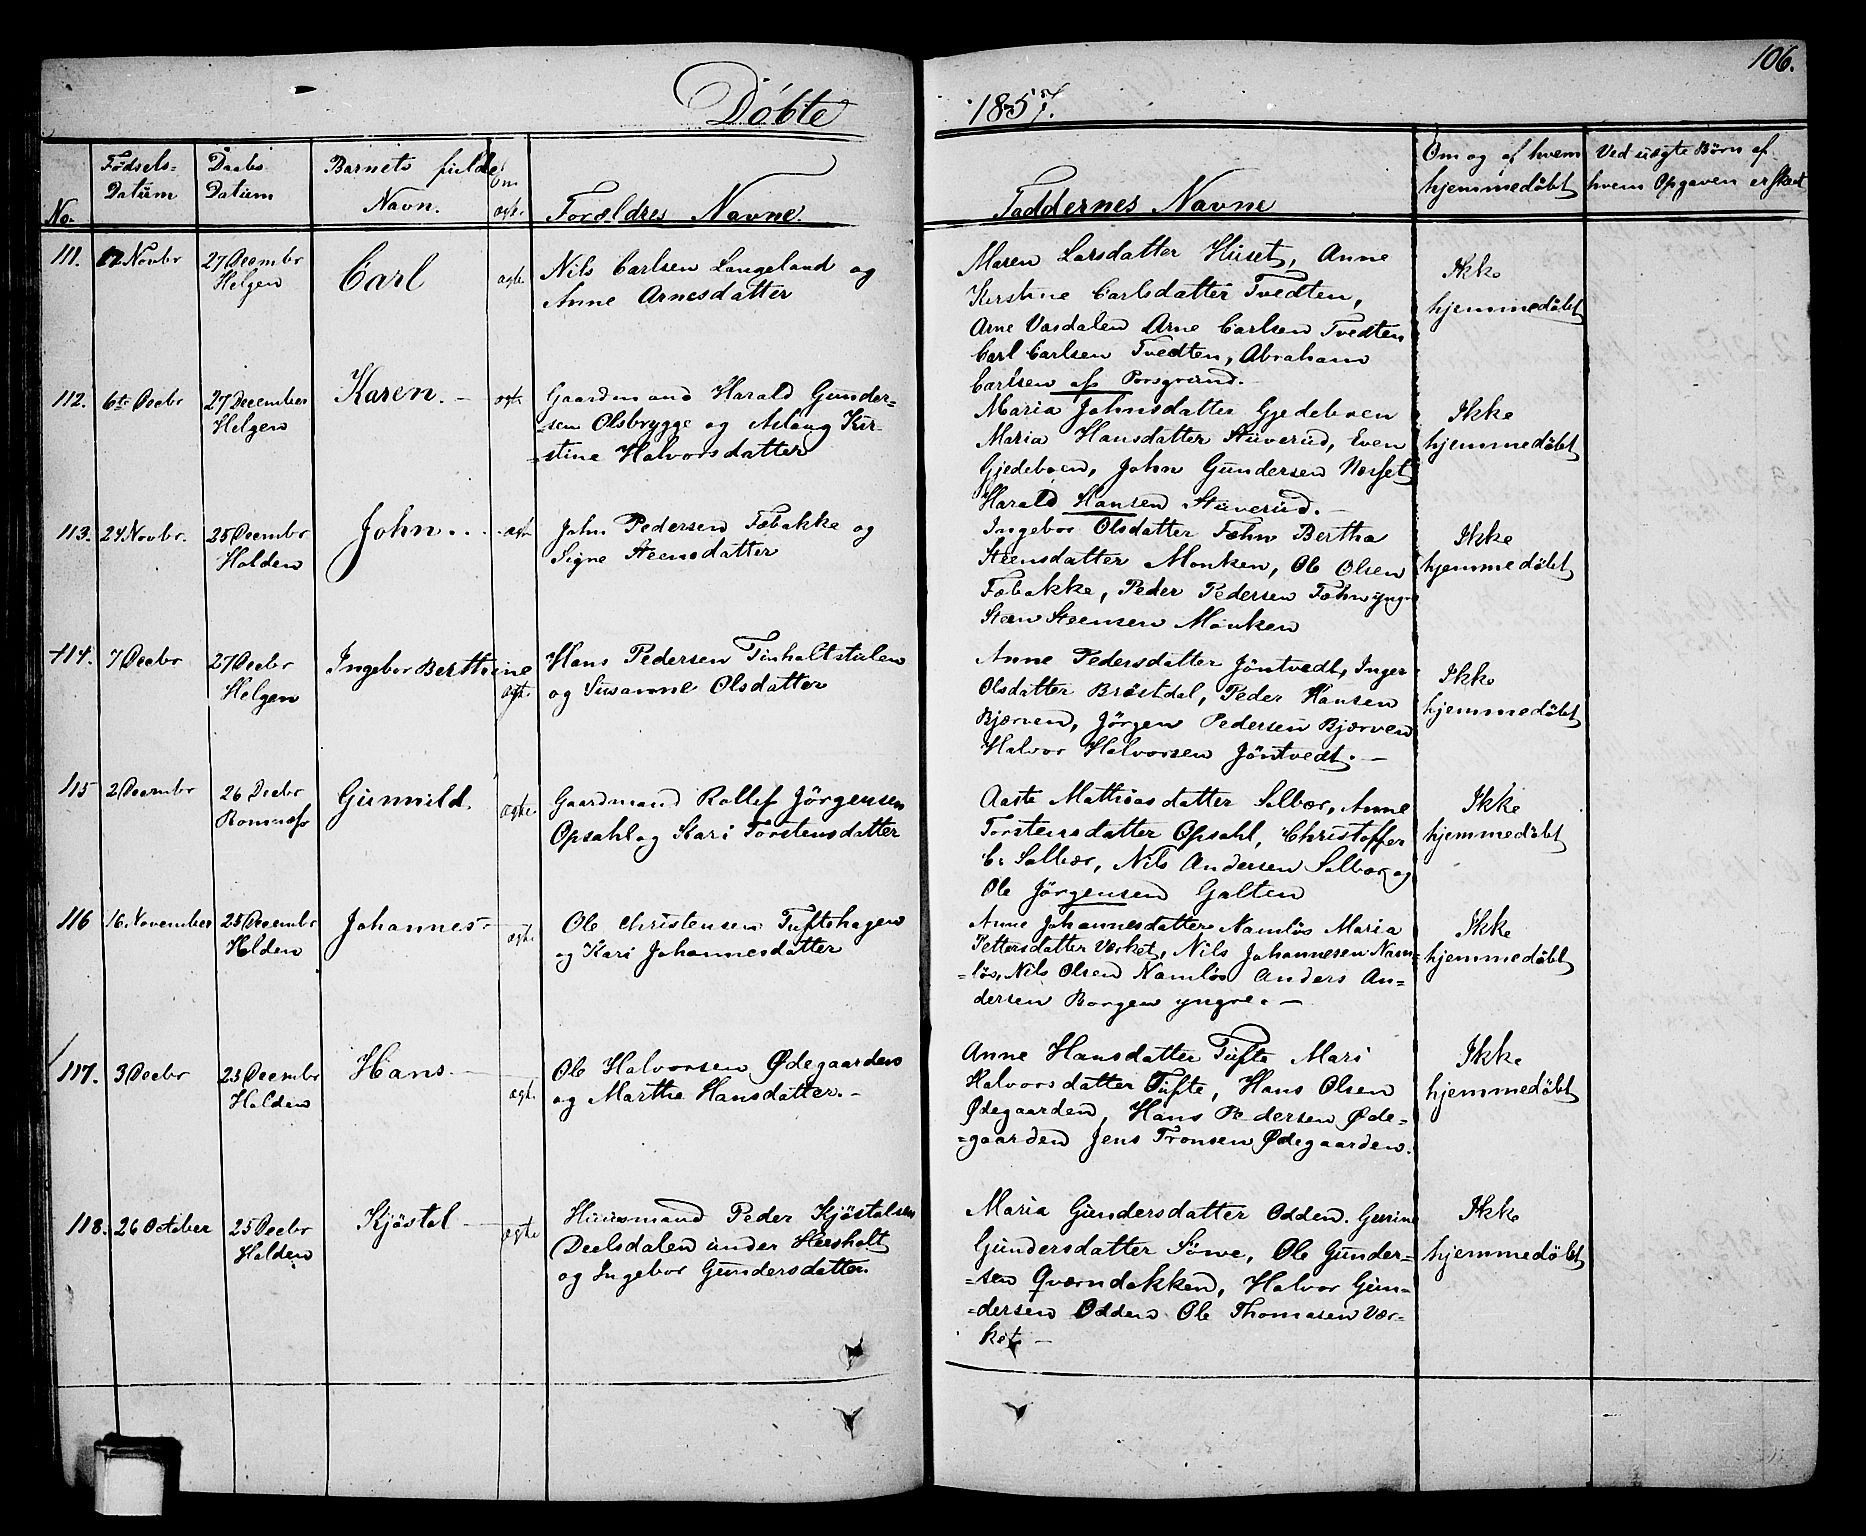 106.
Døbte
1857.
No.
Fødsels-
Datum
Daabs
Datum
Barnets fulde
Navn.
Om
ægte
Forældres Navne.
Faddernes Navne
Om og af hvem
hjemmedøbt
Ved uægte Børn af
hvem Opgaven er skeet
111.
12 Novbr
27 Decembr
Helgen
Carl
ægte
Nils Carlsen Langeland og
Anne Arnesdatter
Maren Larsdatter Huset, Anne
Kirstine Carlsdatter Tvedten,
Arne Vasdalen Arne Carlsen Tvedten
Carl Carlsen Tvedten, Abraham
Carlsen af Porsgrund.
Ikke
hjemmedøbt
112.
6te Decbr
27 December
Helgen
Karen. -
ægte
Gaardmand Harald Gunder-
-sen Olsbrygge og Aslaug Kir-
-stine Halvorsdatter
Maria Johnsdatter Gjedeboen
Maria Hansdatter Stuverud, Even
Gjedeboen, John Gundersen Norset
Harald Hansen Stuverud. -
Ikke
hjemmedøbt
113.
24 Novbr.
25 Decembr
Holden
John..
ægte
John Pedersen Fæbakke og
Signe Steensdatter
Ingebor Olsdatter Fæhn Bertha
Steensdatter Monken, Ole Olsen
Fæbakke, Peder Pedersen Fæhn yngre
Steen Steensen Monken
Ikke
hjemmedøbt
114.
7 Decbr
27 Decbr
Helgen
Ingebor Berthine
ægte
Hans Pedersen Tinholtstulen
og Susanne Olsdatter
Anne Pedersdatter Jöntvedt, Inger
Olsdatter Bröstdal, Peder Hansen
Bjærven, Jörgen Pedersen Bjærven
Halvor Halvorsen Jöntvedt. -
Ikke
hjemmedøbt
115
2 Decembr
26 Decbr
Romnæs
Gunnild.
ægte
Gaardmand Rollef Jörgensen
Opsahl og Kari Torstensdatter
Aaste Mathiasdatter Solbær, Anne
Torstensdatter Opsahl, Christoffer
C. Solbær, Nils Andersen Solbær og
Ole Jörgensen Galten
Ikke
hjemmedøbt
116
16. November
25 Decembr
Holden
Johannes -
ægte
Ole Christensen Tuftehagen
og Kari Johannesdatter
Anne Johannesdatter Namlös Maria
Pettersdatter Værket, Nils Johannesen Nam-
-lös, Nils Olsen Namlös Anders An-
dersen Borgen yngre. -
Ikke
hjemmedøbt
117.
3 Decbr
25 Decembr
Holden
Hans -
ægte
Ole Halvorsen Ødegaarden
og Marthe Hansdatter. -
Anne Hansdatter Tufte Mari
Halvorsdatter Tufte, Hans Olsen
Ødegaarden, Hans Pedersen Øde-
-gaarden Jens Tronsen Ødegaarden.
Ikke
hjemmedøbt
118.
26 October
25 Decbr
Holden
Kjöstel -
ægte
Huusmand Peder Kjöstelsen
Deelsdalen under Heisholt
og Ingebor Gundersdatter.
Maria Gundersdatter Odden. Gurine
Gundersdatter Söwe, Ole Gunder-
-sen Qværndokken, Halvor Gun-
-dersen Odden Ole Thomasen Vær-
ket -
Ikke
hjemmedøbt